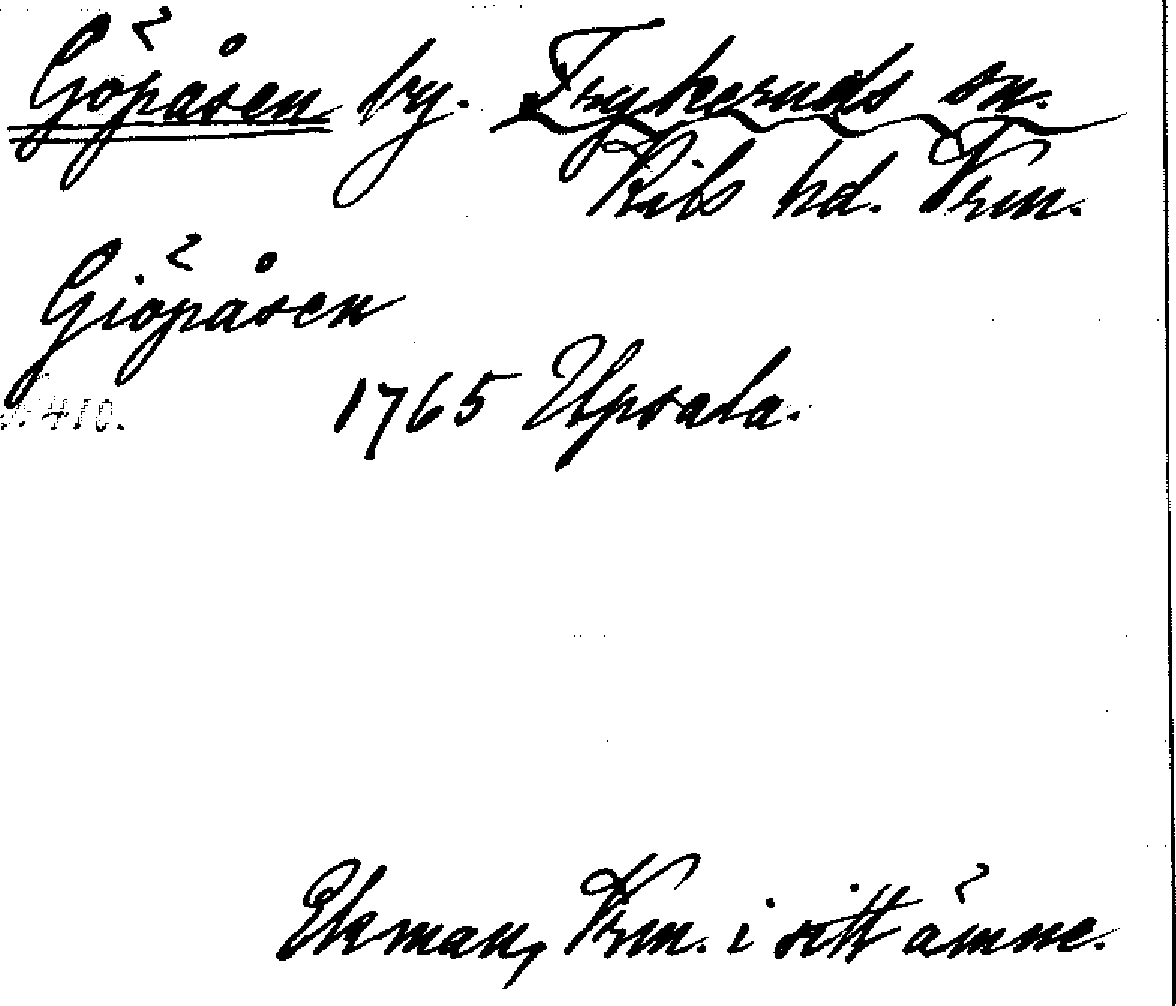 Göpåsen by. Frykeruds sn.
Kils hd. Vrm.
Giöpåsen
1765 Upsala.
Ekman, Vrm. i sitt ämne.